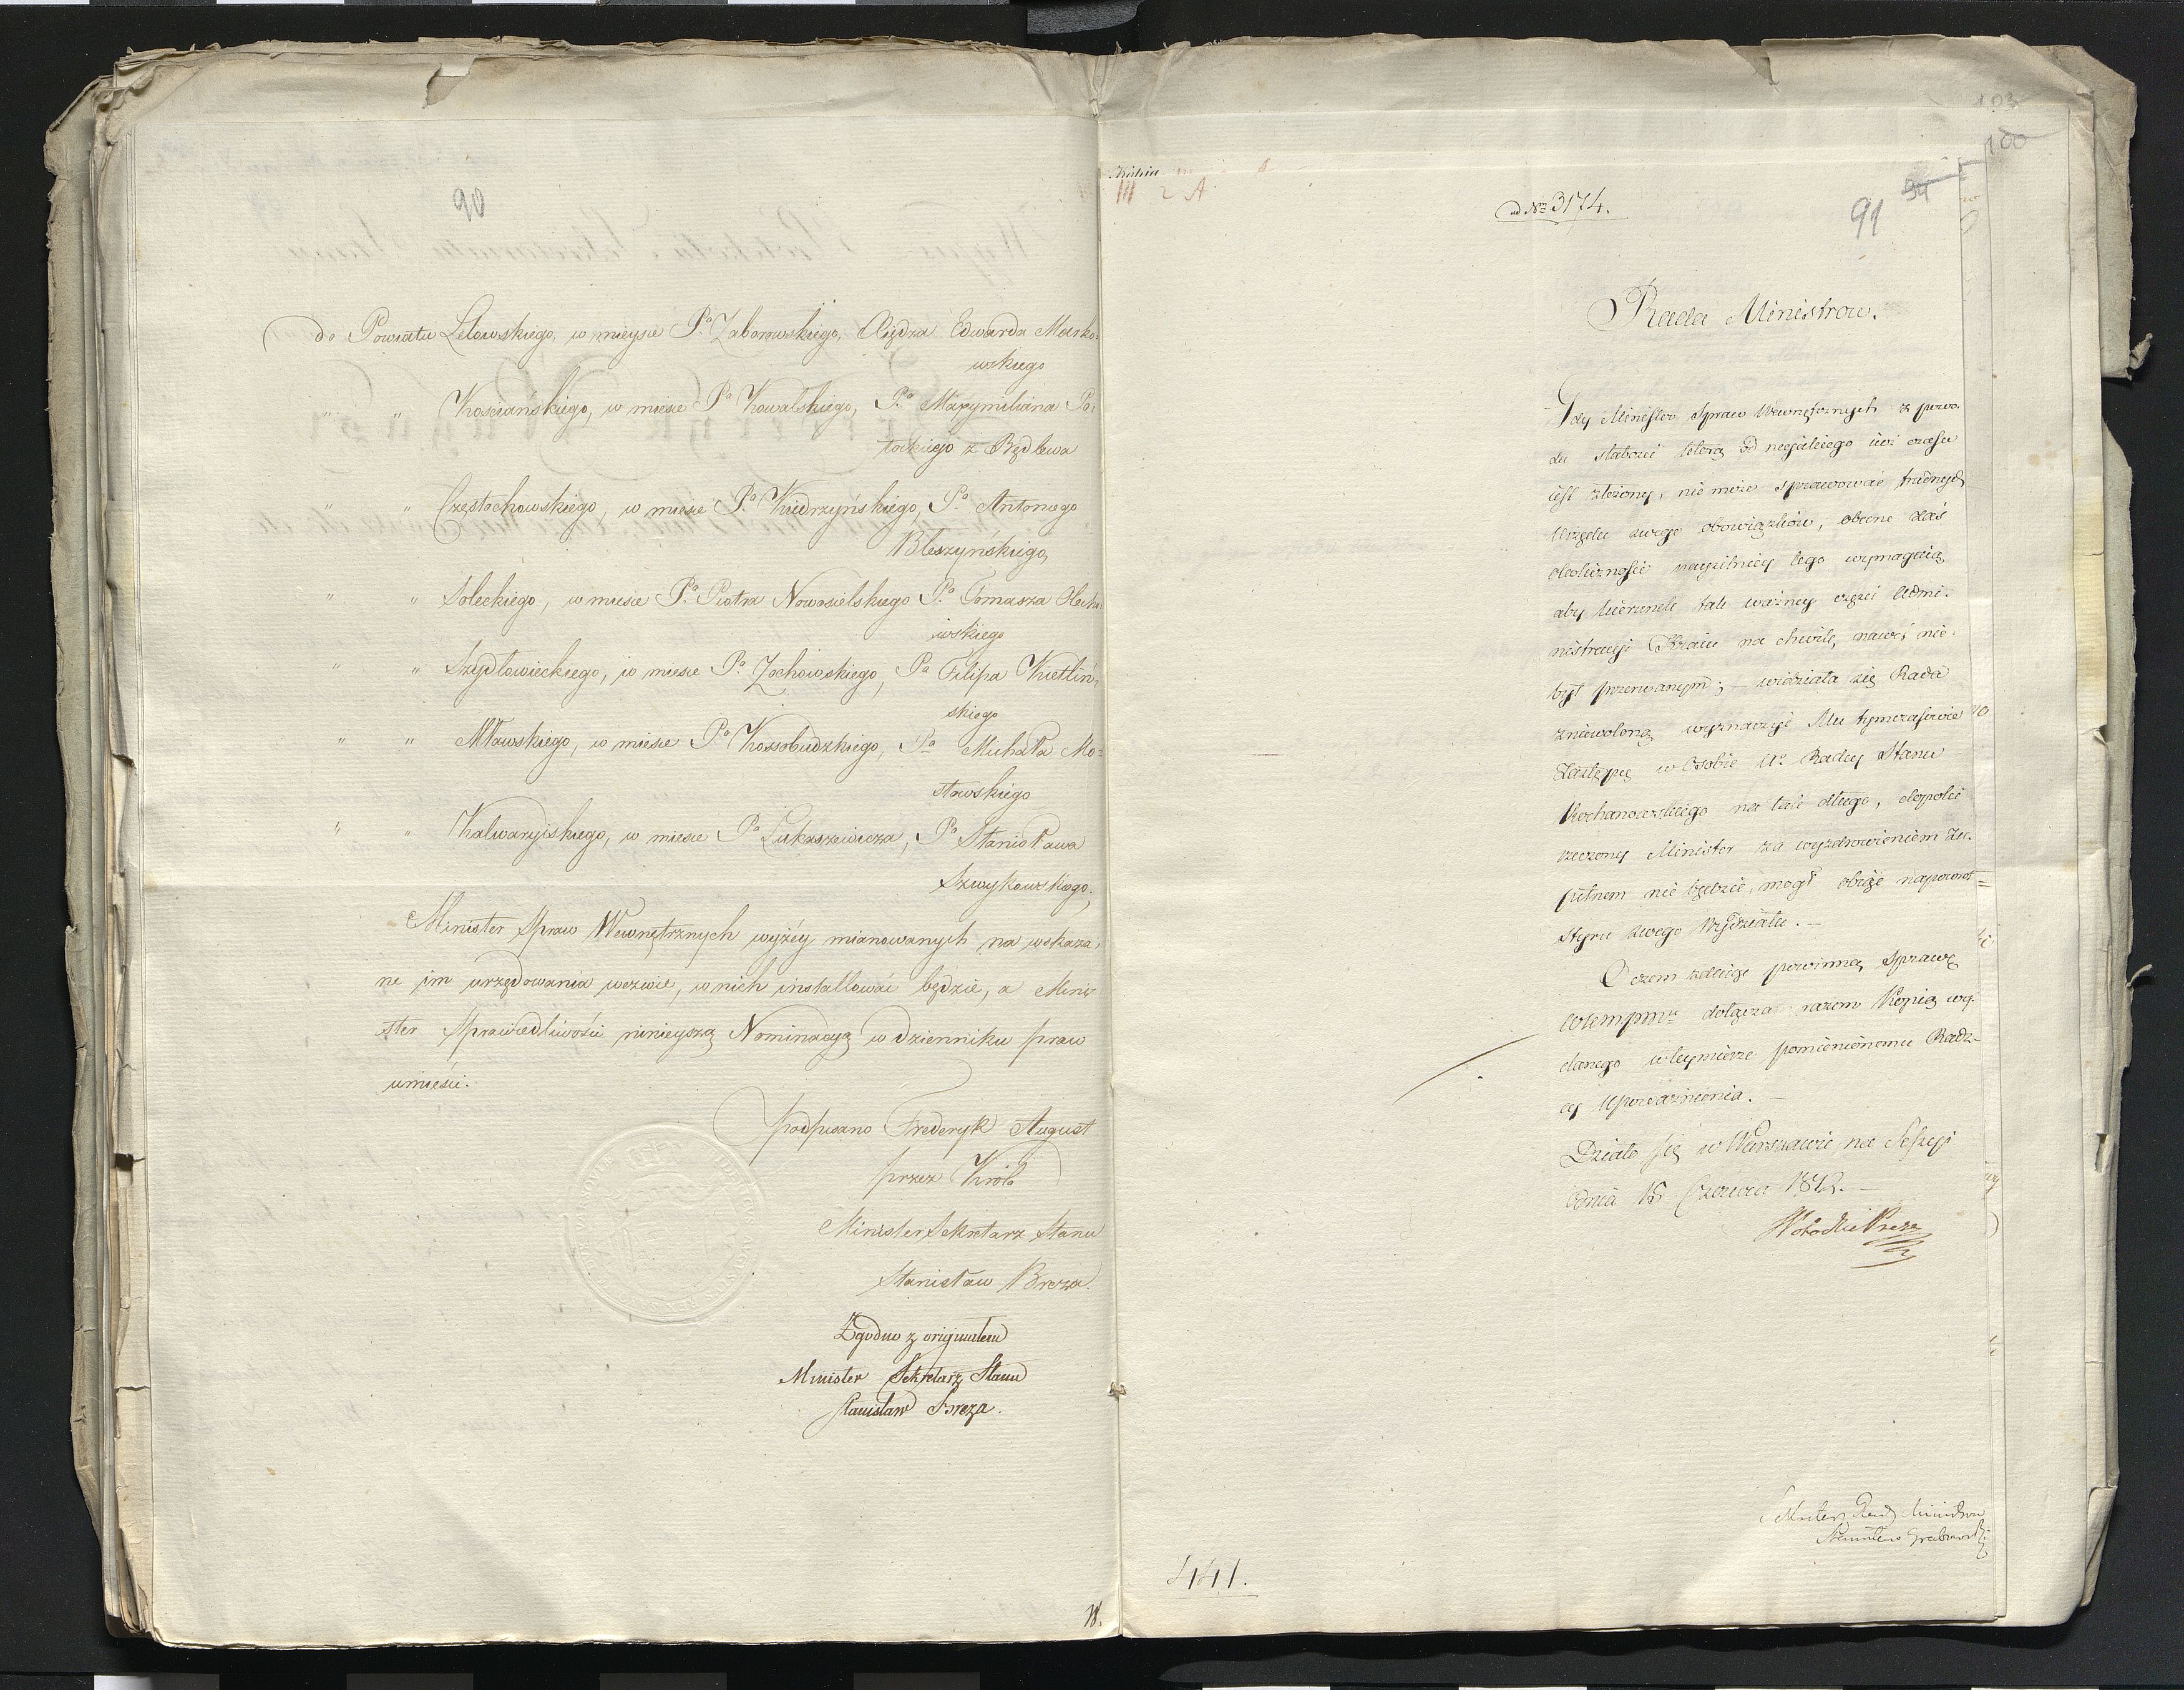 90
do Powiatu Lelowskiego, w mieysce Pa Zaborowskiego, Xiędza Edwarda Marko-
wskiego
" " Kościanskiego, w miesce Pa Kowalskiego, Pa Maxymiliana Po-
tockiego z Będlewa
" " Częstochowskiego, w miesce Pa Kiedrzyńskiego, Pa Antoniego
Bleszyńskiego,
" " Soleckiego, w miesce Pa Piotra Nowosielskiego Pa Tomasza Olecho-
wskiego
" " Szydłowieckiego, w miesce Pa Zochowskiego, Pa Filipa Kietliń-
skiego
" " Mławskiego, w miesce Pa Kossobudzkiego, Pa Michała Mo-
stowskiego
" " Kalwaryiskiego, w miesce Pa Łukaszewicza, Pa Stanisława
Szwykowskiego.
Minister Spraw Wewnętrznych wyżey mianowanych na wskaza-
ne im urzędowania wezwie, w nich installować będzie, a Mini-
ster Sprawiedliwości ninieyszą Nominacyą w dzienniku praw
umieści.
podpisano Frederyk August
przez Króla
Minister Sekretarz Stanu
Stanisław Breza.
Zgodno z originałem
Minister Sekretarz Stanu
Stanisław Breza.
103
100
III 2 A
ad Nrm 3174.
94
91
Rada Ministrow.
Gdy Minister Spraw Wewnętrznych z powo-
du słabości którą od niejakiego iuż czasu
iest złożony, nie może sprawować trudnych
Urzędu swego obowiązków, obecne zaś
okoliczności naysilniey tego wymagaią
aby kierunek tak ważney części Admi-
nistracyi Kraiu na chwilę nawet nie
był przerwanym; – widziała się Rada
zniewoloną wyznaczyć Mu tymczasowie
Zastępcę w Osobie Ur Radcy Stanu
Kochanowskiego na tak długo, dopóki
rzeczony Minister za wyzdrowieniem zu-
pełnem nie będzie mógł objąć napowrot
Steru swego Wydziału. –
O czem zdaiąc powinną Sprawę
dołącza razem Kopią wy-
danego w tey mierze pomienionemu Radz-
cy Upoważnienia. –
Działo się w Warszawie na Sessyi
dnia 18 Czerwca 1812. –
Sekretarz Rady Ministrow
Stanisław Grabowski
441.